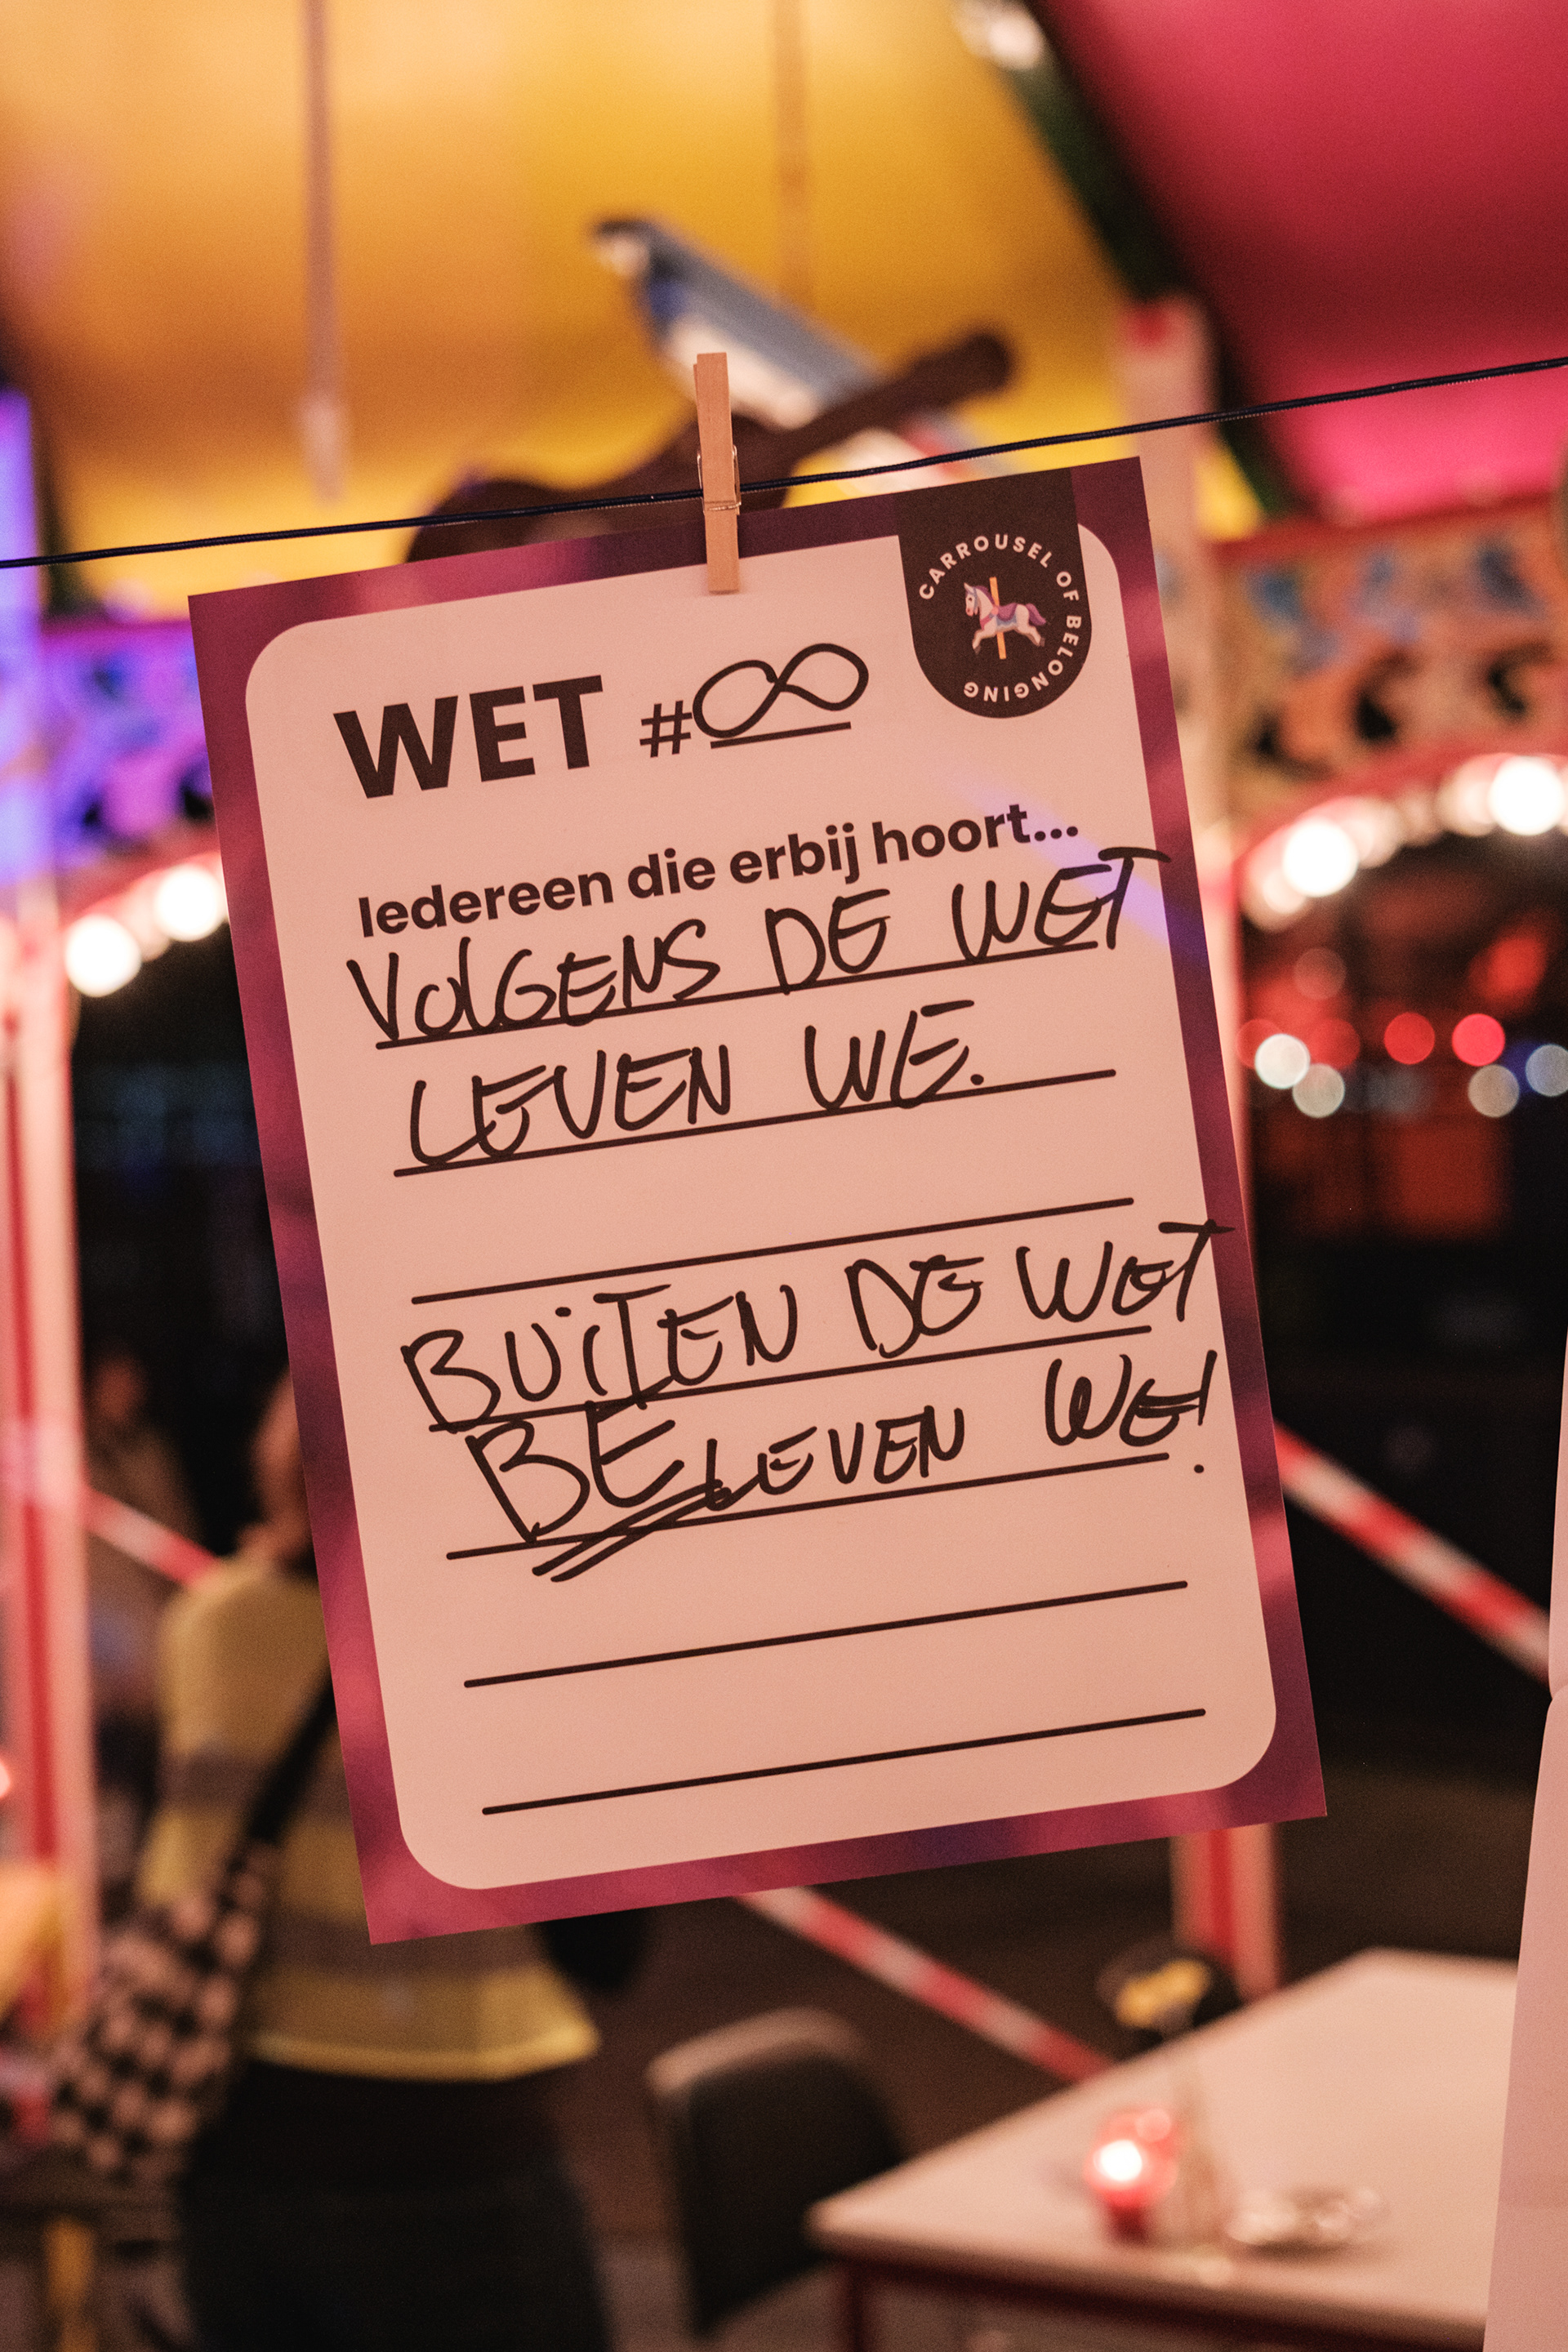 CARROUSEL OF BELONGING
WET #∞
Iedereen die erbij hoort...
VOLGENS DE WET
LEVEN WE.
BUITEN DE WET
BELEVEN WE!